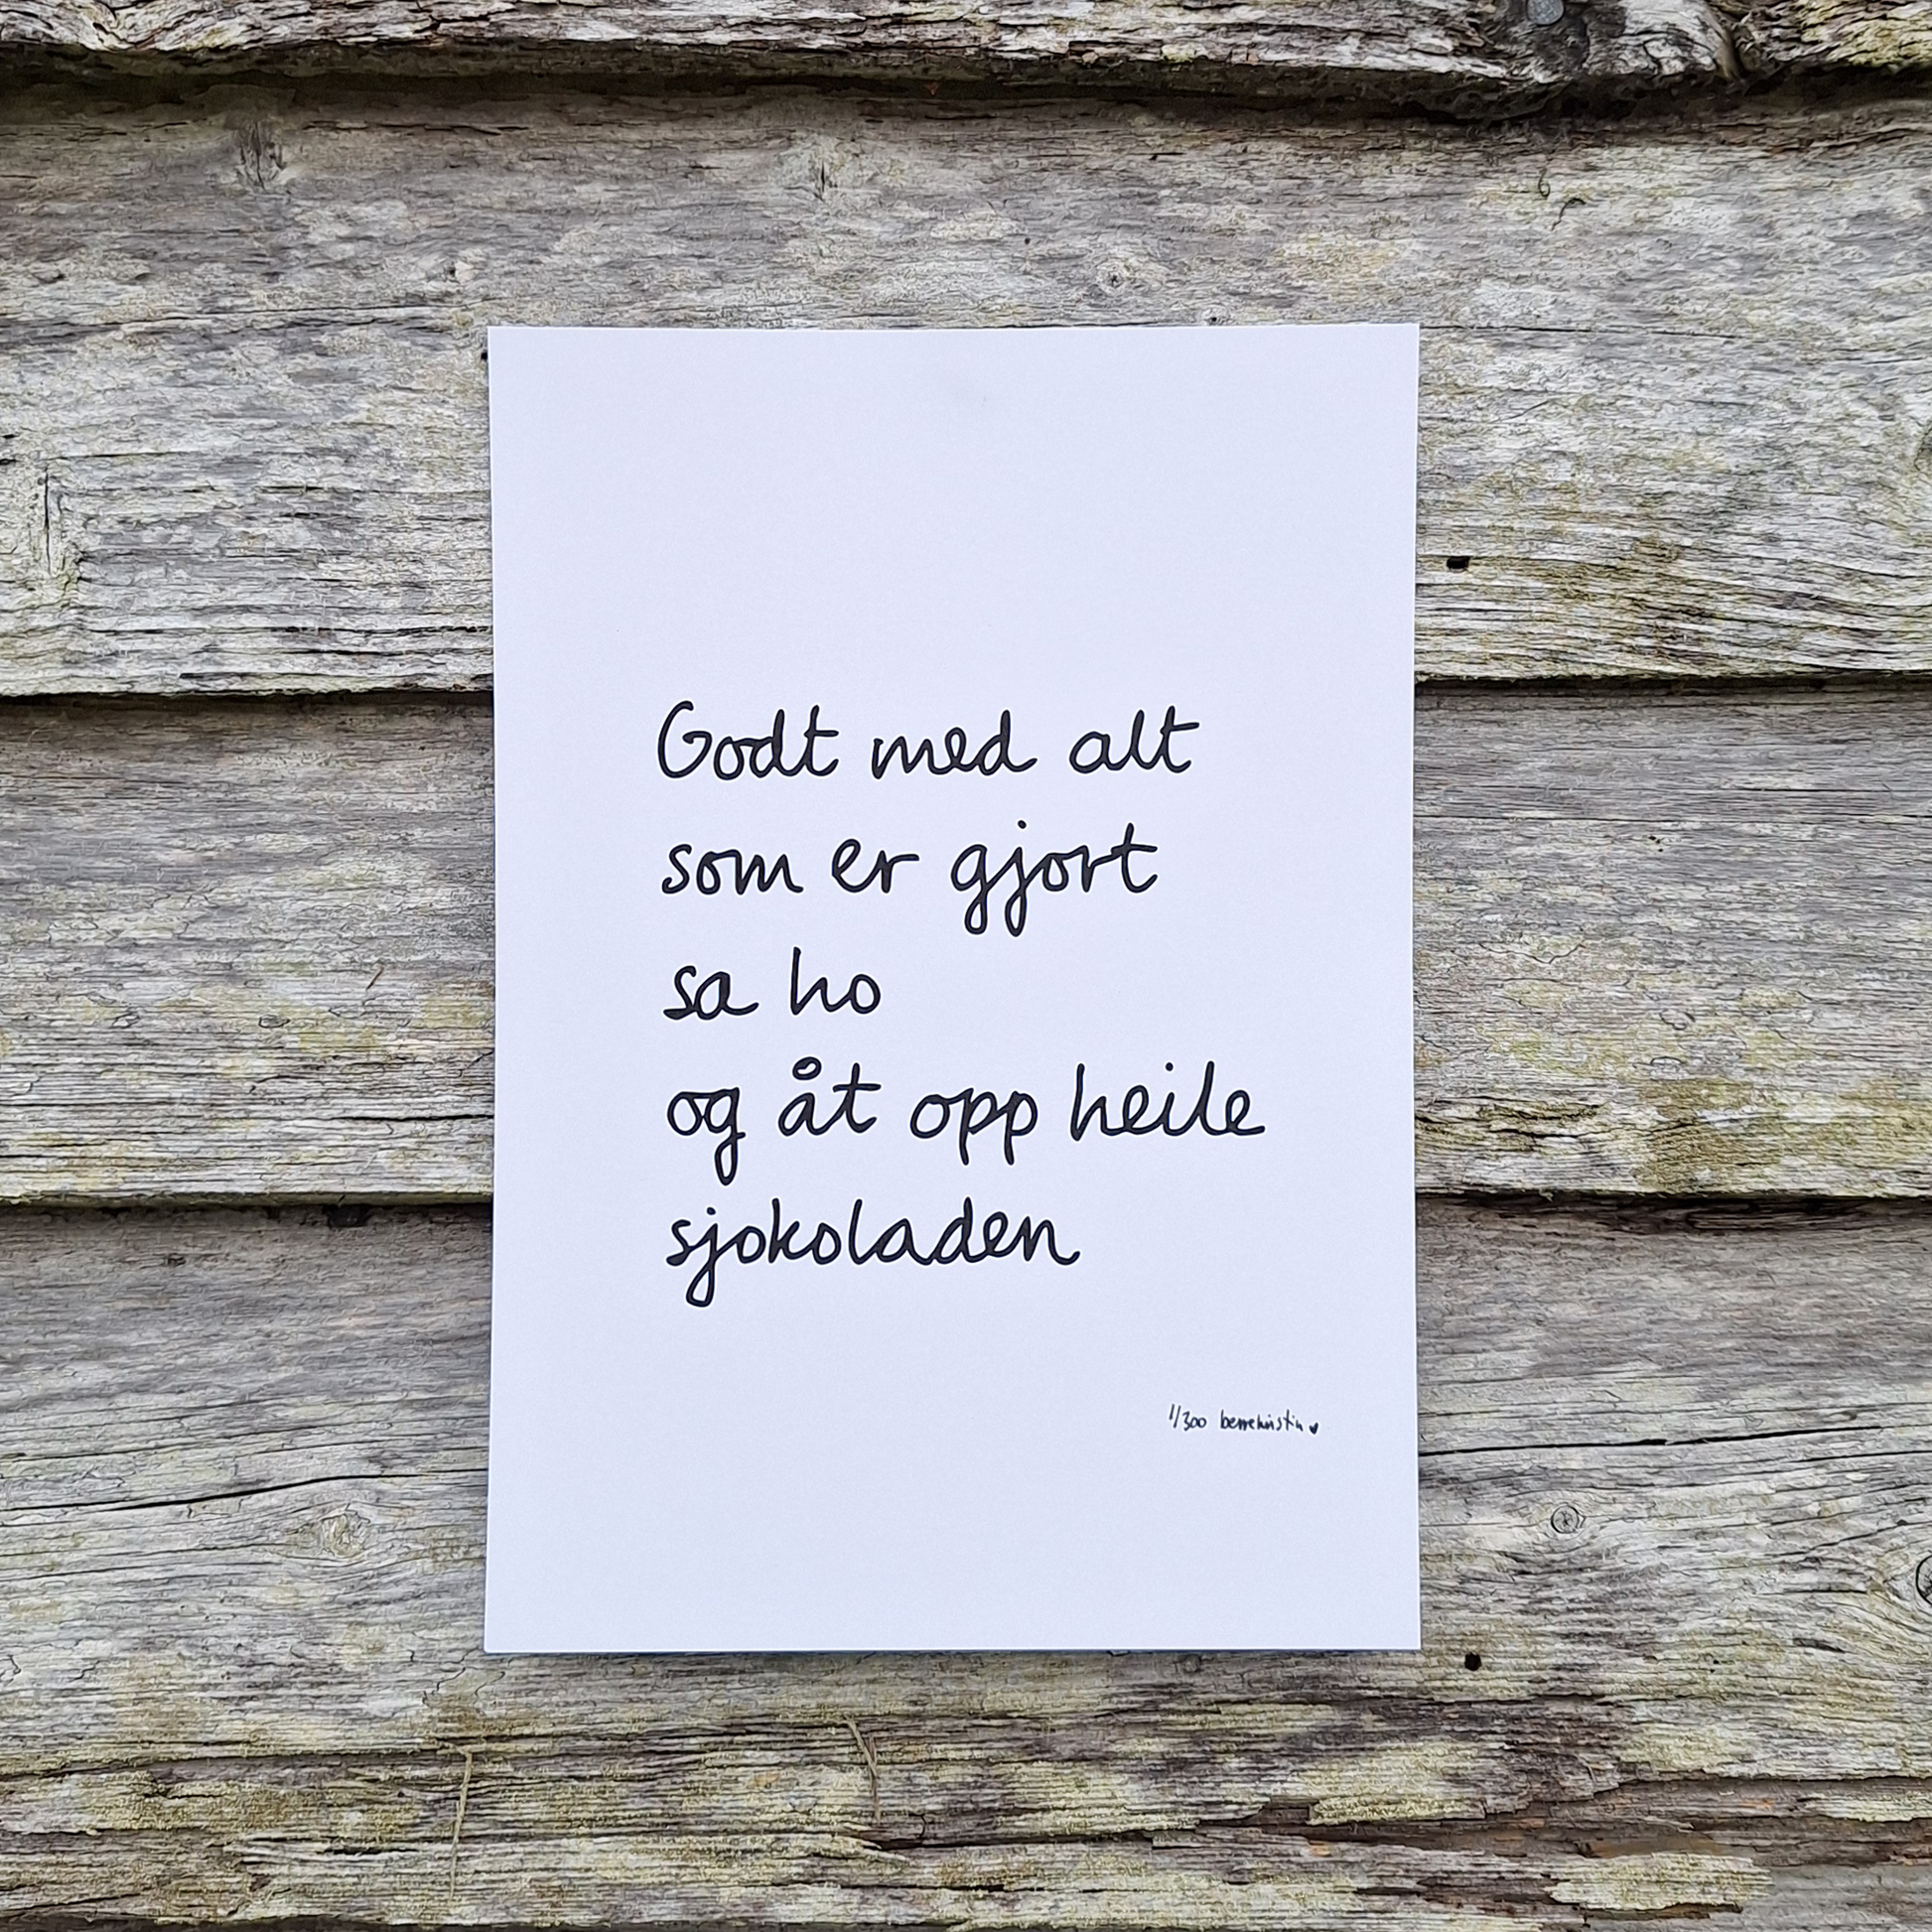 Godt med alt
som er gjort
sa ho
og åt opp heile
sjokoladen
1/300 berrekristin